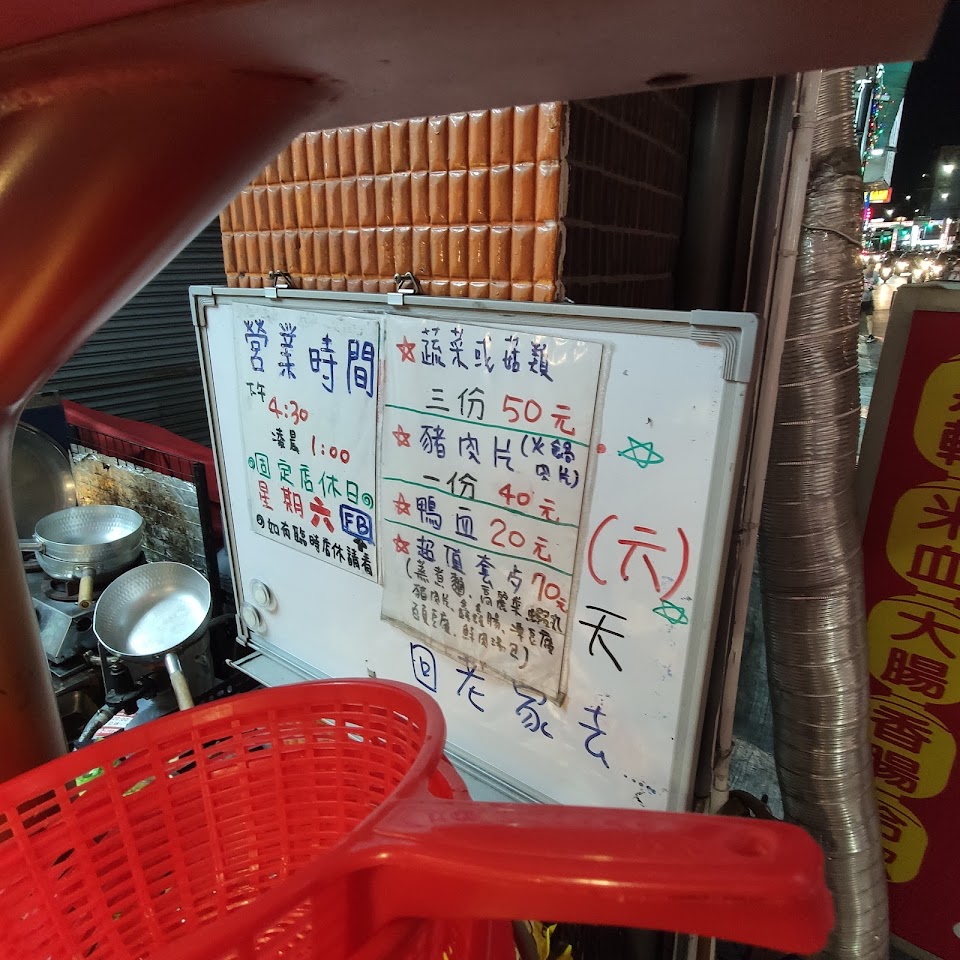 營業時間
下午
4:30
凌晨 1:00
固定店休日
星期六 FB
如有臨時店休請看
☆蔬菜或菇類
三份 50元
☆豬肉片(火鍋肉片)
一份 40元
☆鴨血 20元
☆超值套占 70元
(蒸煮麵、高麗菜、蝦丸
百頁豆腐、鮮肉
(六)
天
回老家去....
米血
大腸
香腸